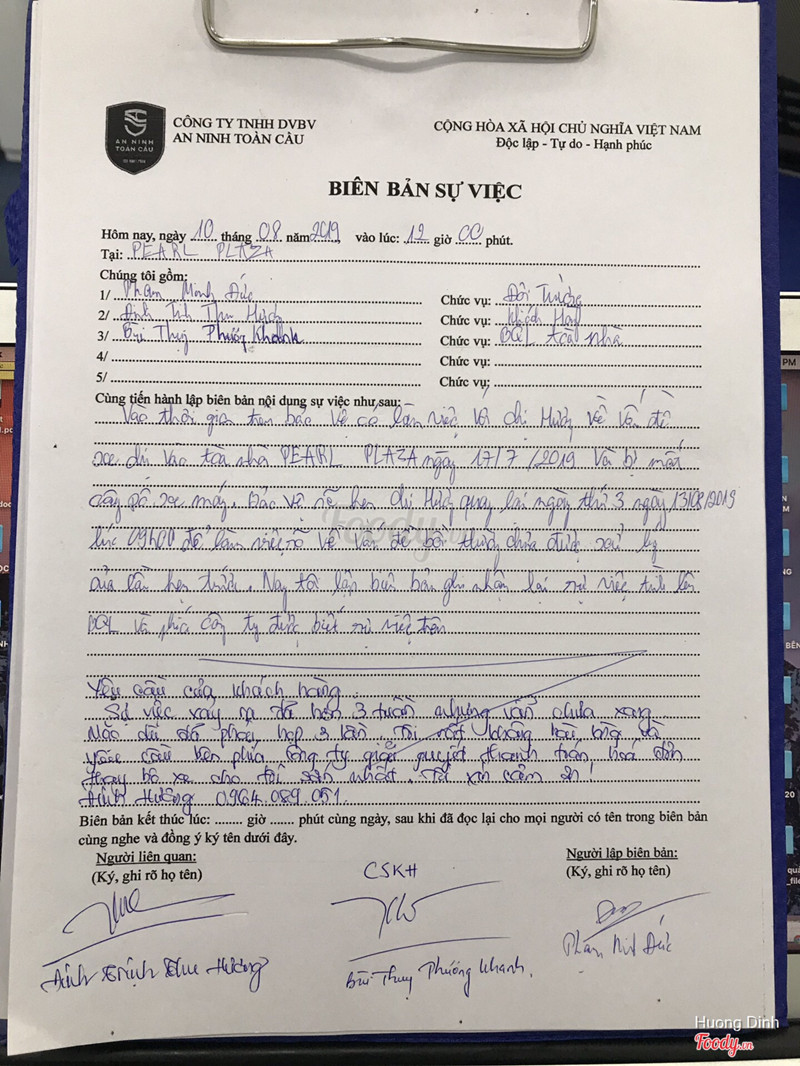 AN NINH
TOÀN CẦU
CÔNG TY TNHH DVBV
AN NINH TOÀN CẦU
CỘNG HÒA XÃ HỘI CHỦ NGHĨA VIỆT NAM
Độc lập - Tự do - Hạnh phúc
BIÊN BẢN SỰ VIỆC
Hôm nay, ngày 10 tháng 08 năm 2019, vào lúc: 12 giờ 00 phút.
Tại: PEARL PLAZA
Chúng tôi gồm:
1/ Phạm Minh Đức Chức vụ: Đội Trưởng
2/ Đinh Thu Hương Chức vụ: Khách Hàng
3/ Bùi Thuỵ Phương Khanh Chức vụ: BQL tòa nhà
4/ Chức vụ:
5/ Chức vụ:
Cùng tiến hành lập biên bản nội dung sự việc như sau:
Vào thời gian trên bảo vệ có làm việc với chị Hương về vấn đề
xe chị vào tòa nhà PEARL PLAZA ngày 17/7/2019 và bị mất
xe máy. Bảo vệ hẹn chị Hương quay lại ngày thứ 3 ngày 13/08/2019
lúc 09h00 để làm việc rõ về vấn đề bồi thường chưa được xử lý
của lần hẹn trước. Nay tôi lập biên bản ghi nhận lại sự việc lên
BQL và phía công ty được biết sự việc trên
Yêu cầu của khách hàng
Sự việc xảy ra đã hơn 3 tuần nhưng vẫn chưa xong
Mặc dù đã phải họp 3 lần. Tôi rất không hài lòng và
yêu cầu bên phía công ty giải quyết thanh toán hoá đơn
thay xe cho tôi sớm nhất. Tôi xin cảm ơn!
Đinh Hương 0964.089.051.
Biên bản kết thúc lúc: ........ giờ ....... phút cùng ngày, sau khi đã đọc lại cho mọi người có tên trong biên bản
cùng nghe và đồng ý ký tên dưới đây.
Người liên quan:
(Ký, ghi rõ họ tên)
CSKH
Người lập biên bản:
(Ký, ghi rõ họ tên)
Đinh Trịnh Thu Hương
Bùi Thuỵ Phương Khanh
Phạm Minh Đức
Foody
Huong Dinh
Foody.vn